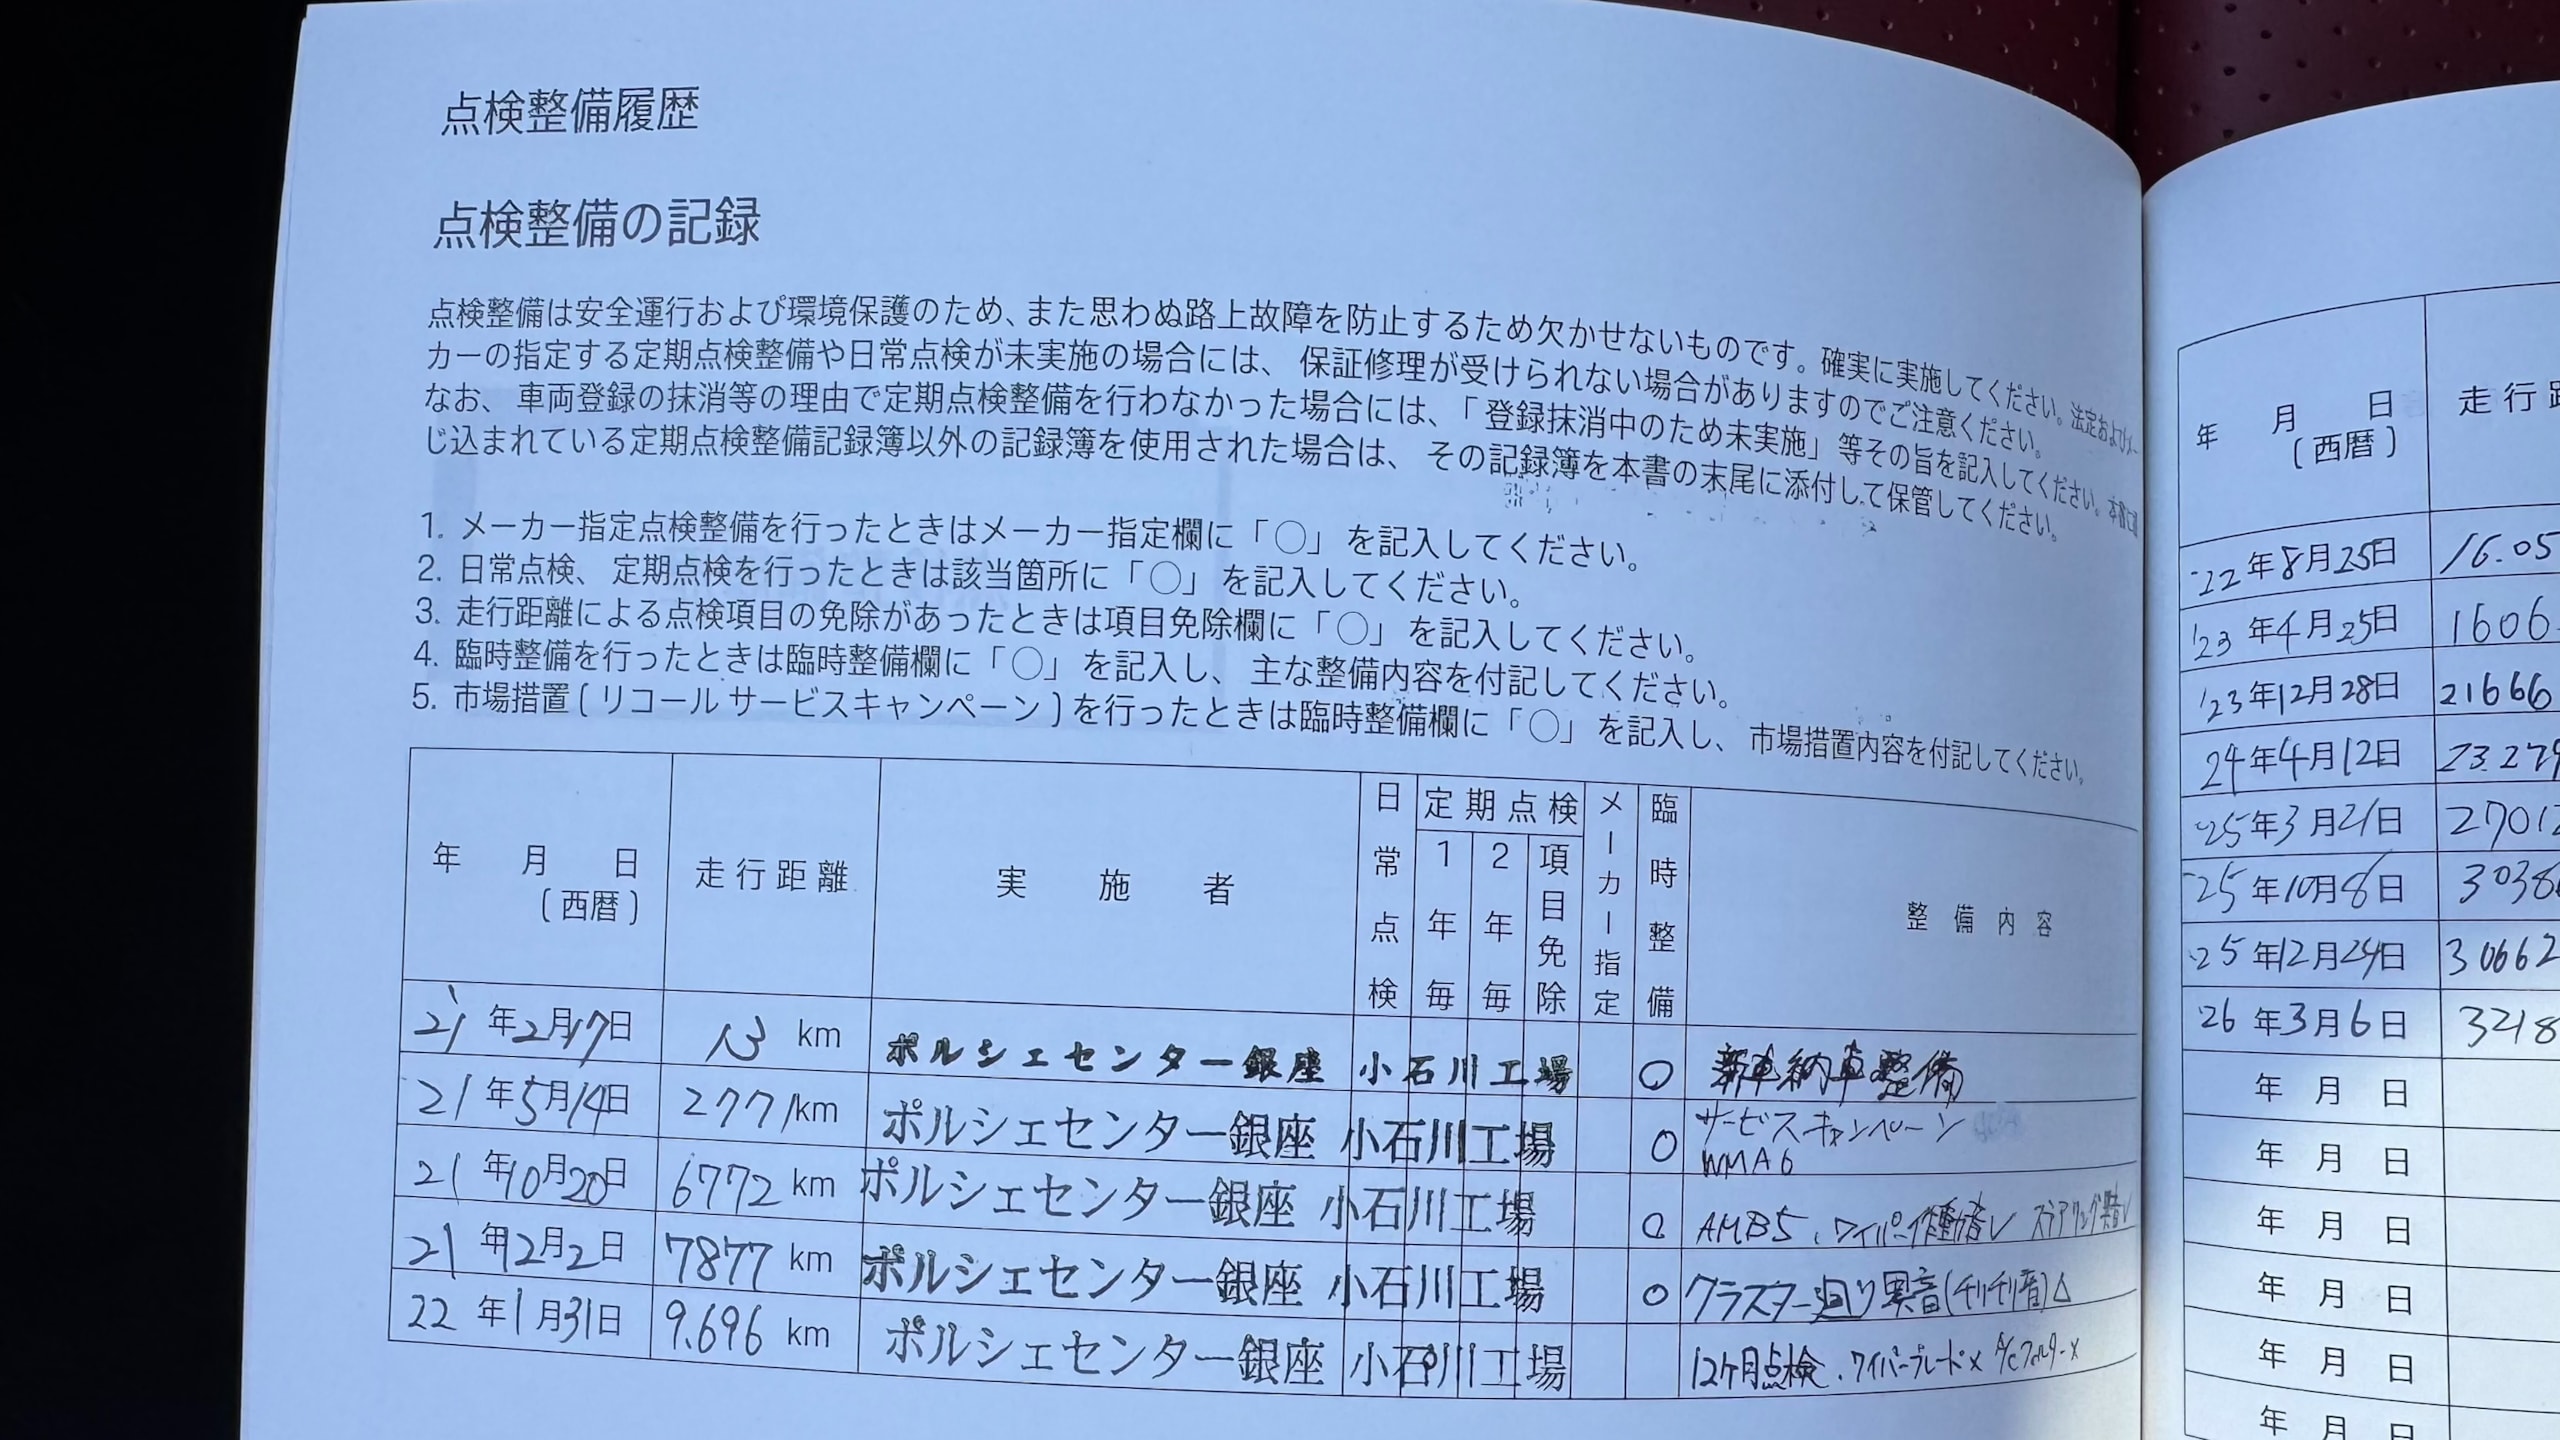 点検整備履歴
点検整備の記録
点検整備は安全運行および環境保護のため、また思わぬ路上故障を防止するため欠かせないものです。確実に実施してください。法定およびメー
カーの指定する定期点検整備や日常点検が未実施の場合には、保証修理が受けられない場合がありますのでご注意ください。
なお、車両登録の抹消等の理由で定期点検整備を行わなかった場合には、「登録抹消中のため未実施」等その旨を記入してください。本書に綴
じ込まれている定期点検整備記録簿以外の記録簿を使用された場合は、その記録簿を本書の末尾に添付して保管してください。
1. メーカー指定点検整備を行ったときはメーカー指定欄に「○」を記入してください。
2. 日常点検、定期点検を行ったときは該当箇所に「○」を記入してください。
3. 走行距離による点検項目の免除があったときは項目免除欄に「○」を記入してください。
4. 臨時整備を行ったときは臨時整備欄に「○」を記入し、主な整備内容を付記してください。
5. 市場措置(リコール サービスキャンペーン)を行ったときは臨時整備欄に「○」を記入し、市場措置内容を付記してください。
年 月 日 (西暦) 走行距離 実施者 日常点検 定期点検 1年毎 2年毎 項目免除 メーカー指定 臨時整備 整備内容
'21年2月17日 13 km ポルシェセンター銀座 小石川工場 ○ 新車納車整備
21年5月14日 2771km ポルシェセンター銀座 小石川工場 ○ サービスキャンペーン WMA6
21年10月20日 6772 km ポルシェセンター銀座 小石川工場 ○ AMB5、ワイパー作動音レ ステアリング異音レ
21年12月2日 7877 km ポルシェセンター銀座 小石川工場 ○ クラスター廻り異音(チリチリ音)△
22年1月31日 9.696 km ポルシェセンター銀座 小石川工場 ○ 12ケ月点検、ワイパーブレード× A/Cフィルター×
年 月 日 (西暦) 走行
'22年8月25日 16.05
'23年4月25日 1606
'23年12月28日 21666
24年4月12日 23.279
'25年3月21日 27012
'25年10月8日 3038
'25年12月24日 30662
'26年3月6日 3218
年 月 日
年 月 日
年 月 日
年 月 日
年 月 日
年 月 日